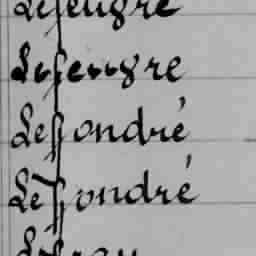 Lefeugre
Lefeuvgre
Lefondré
Lefondré